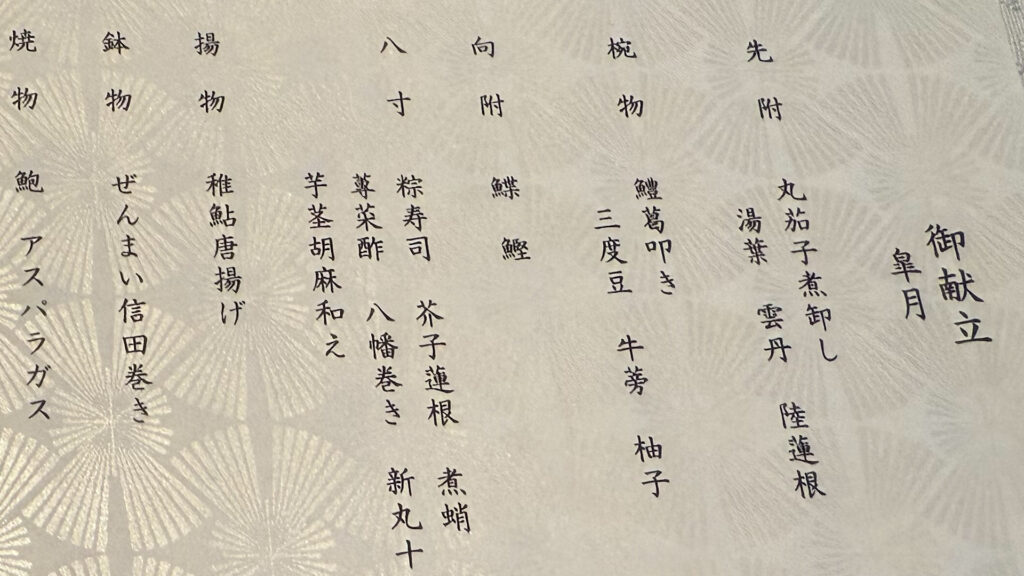 御献立
皐月
先附 丸茄子煮卸し 陸蓮根
湯葉 雲丹
椀物 鱧葛叩き 牛蒡 柚子
三度豆
向附 鰈 鰹
八寸 粽寿司 芥子蓮根 煮蛸
蓴菜酢 八幡巻き 新丸十
芋茎胡麻和え
揚物 稚鮎唐揚げ
鉢物 ぜんまい信田巻き
焼物 鮑 アスパラガス